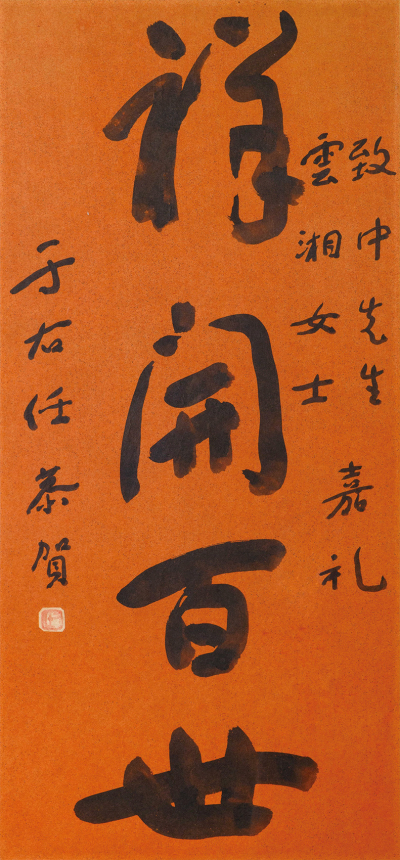 致中先生
雲湘女士
嘉礼
祥開百世
于右任恭賀